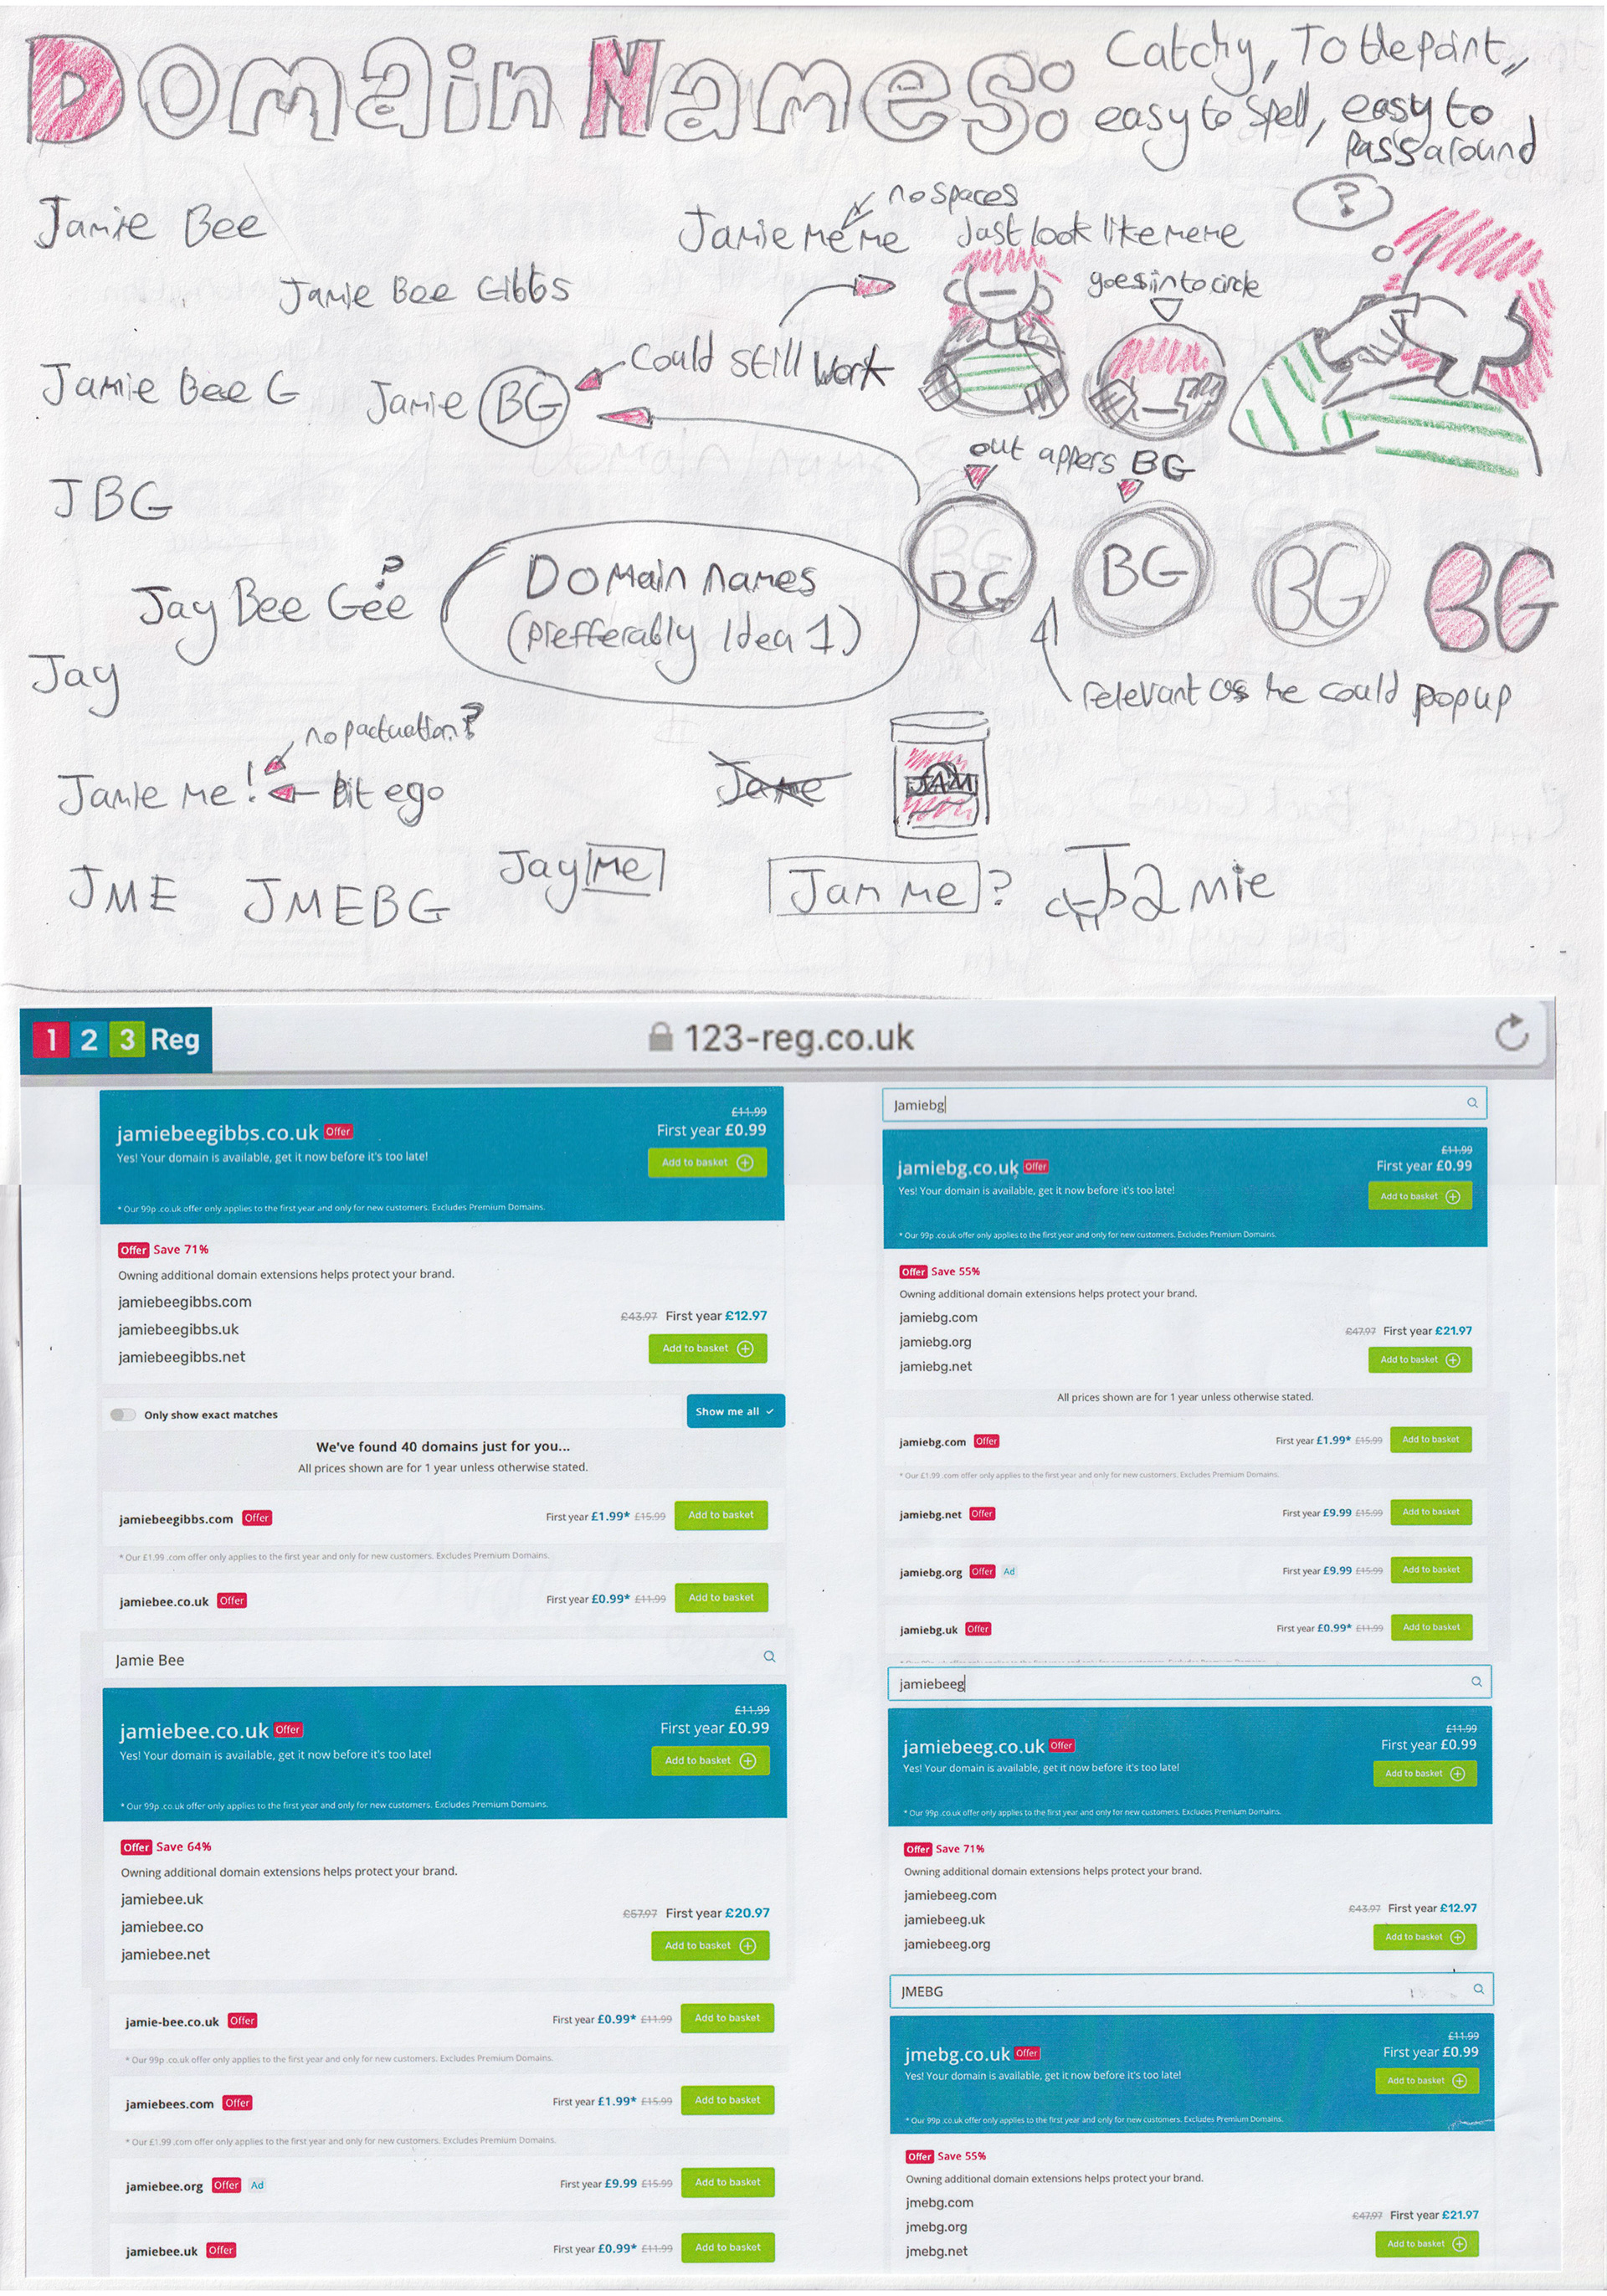 Domain Names:
Catchy, To the point,,
easy to spell, easy to
pass around
Jamie Bee
no spaces
Jamie me me
Just look like meme
?
Jamie Bee Gibbs
goes in to circle
Could still work
Jamie Bee G
Jamie BG
out appers BG
JBG
BG
BG
BG
BG
BG
Jay Bee Gee
?
Domain names
(prefferably Idea 1)
Jay
relevant as he could popup
no pactuation?
Jamie me !
bit ego
JAM
Jay me
Jam me ?
Jamie
JME
JMEBG
1 2 3 Reg
123-reg.co.uk
jamiebeegibbs.co.uk Offer
£11.99
First year £0.99
Yes! Your domain is available, get it now before it's too late!
Add to basket
* Our 99p .co.uk offer only applies to the first year and only for new customers. Excludes Premium Domains.
Offer Save 71%
Owning additional domain extensions helps protect your brand.
jamiebeegibbs.com
jamiebeegibbs.uk
jamiebeegibbs.net
£43.97 First year £12.97
Add to basket
Only show exact matches
Show me all
We've found 40 domains just for you...
All prices shown are for 1 year unless otherwise stated.
jamiebeegibbs.com Offer First year £1.99* £15.99 Add to basket
* Our £1.99 .com offer only applies to the first year and only for new customers. Excludes Premium Domains.
jamiebee.co.uk Offer First year £0.99* £11.99 Add to basket
Jamie Bee
jamiebee.co.uk Offer
£11.99
First year £0.99
Yes! Your domain is available, get it now before it's too late!
Add to basket
* Our 99p .co.uk offer only applies to the first year and only for new customers. Excludes Premium Domains.
Offer Save 64%
Owning additional domain extensions helps protect your brand.
jamiebee.uk
jamiebee.co
jamiebee.net
£57.97 First year £20.97
Add to basket
jamie-bee.co.uk Offer First year £0.99* £11.99 Add to basket
* Our 99p .co.uk offer only applies to the first year and only for new customers. Excludes Premium Domains.
jamiebees.com Offer First year £1.99* £15.99 Add to basket
* Our £1.99 .com offer only applies to the first year and only for new customers. Excludes Premium Domains.
jamiebee.org Offer Ad First year £9.99 £15.99 Add to basket
jamiebee.uk Offer First year £0.99* £11.99 Add to basket
Jamiebg
jamiebg.co.uk Offer
£11.99
First year £0.99
Yes! Your domain is available, get it now before it's too late!
Add to basket
* Our 99p .co.uk offer only applies to the first year and only for new customers. Excludes Premium Domains.
Offer Save 55%
Owning additional domain extensions helps protect your brand.
jamiebg.com
jamiebg.org
jamiebg.net
£47.97 First year £21.97
Add to basket
All prices shown are for 1 year unless otherwise stated.
jamiebg.com Offer First year £1.99* £15.99 Add to basket
* Our £1.99 .com offer only applies to the first year and only for new customers. Excludes Premium Domains.
jamiebg.net Offer First year £9.99 £15.99 Add to basket
jamiebg.org Offer Ad First year £9.99 £15.99 Add to basket
jamiebg.uk Offer First year £0.99* £11.99 Add to basket
jamiebeeg
jamiebeeg.co.uk Offer
£11.99
First year £0.99
Yes! Your domain is available, get it now before it's too late!
Add to basket
* Our 99p .co.uk offer only applies to the first year and only for new customers. Excludes Premium Domains.
Offer Save 71%
Owning additional domain extensions helps protect your brand.
jamiebeeg.com
jamiebeeg.uk
jamiebeeg.org
£43.97 First year £12.97
Add to basket
JMEBG
jmebg.co.uk Offer
£11.99
First year £0.99
Yes! Your domain is available, get it now before it's too late!
Add to basket
* Our 99p .co.uk offer only applies to the first year and only for new customers. Excludes Premium Domains.
Offer Save 55%
Owning additional domain extensions helps protect your brand.
jmebg.com
jmebg.org
jmebg.net
£47.97 First year £21.97
Add to basket